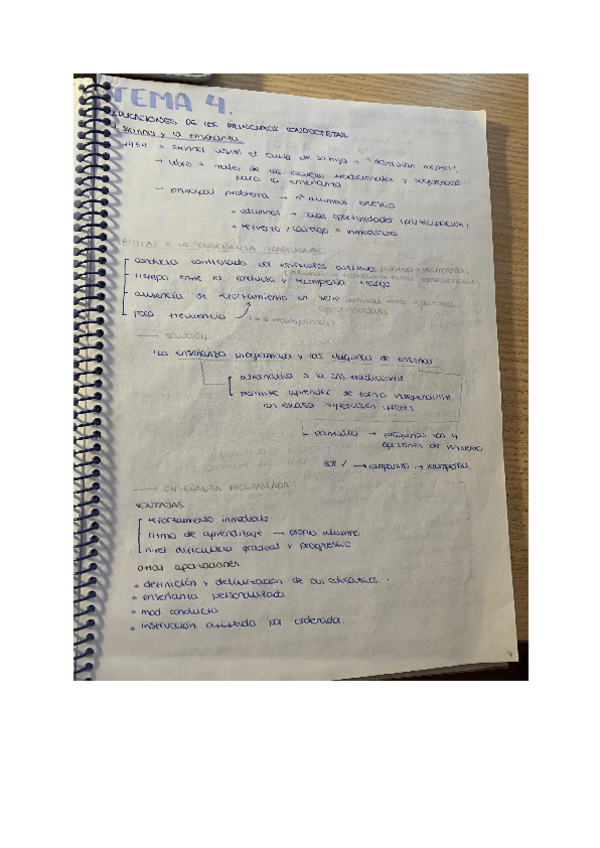 TEMA 4.
APLICACIONES DE LOS PRINCIPIOS CONDUCTISTAS
1. Skinner y la enseñanza.
1954 → Skinner visitó el aula de su hija → "destruían mentes".
→ libro → males de las escuelas tradicionales y sugerencias
para la enseñanza
→ principal problema → nº alumnos
• alumnos → oportunidades (participación).
• refuerzo / castigo x inmediatos
CRÍTICAS A LA ENSEÑANZA TRADICIONAL
conducta controlada por estímulos aversivos
tiempo entre la conducta y recompensa → largo
ausencia de reforzamiento en serie
poca frecuencia
→ SOLUCIÓN
La enseñanza programada y las máquinas de enseñar
alternativa a la ens. tradicional
permite aprender de forma independiente,
con escasa supervisión
pantalla → preguntas con 4
opciones de respuesta
✓ → → recompensa
→ ENSEÑANZA PROGRAMADA
VENTAJAS
reforzamiento inmediato
ritmo de aprendizaje → alumno
nivel dificultad gradual y progresivo
otras aportaciones
• definición y delimitación de obj. educativos.
• enseñanza personalizada
• mod. conducta
• instrucción asistida por ordenador.
7